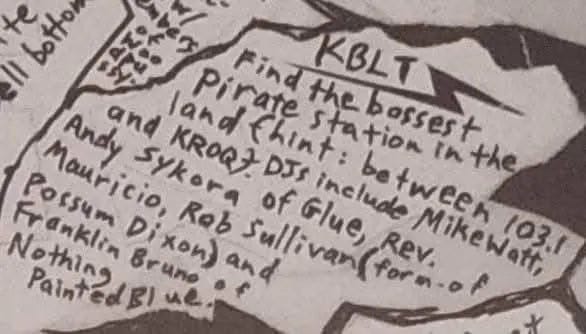 ite
ell bottom
KBLT
Find the bossest
Pirate station in the
land (hint: between 103.1
and KROQ). DJs include Mike Watt,
Andy Sykora of Glue, Rev.
Mauricio, Rob Sullivan (form. of
Possum Dixon) and
Franklin Bruno of
Nothing
Painted Blue.